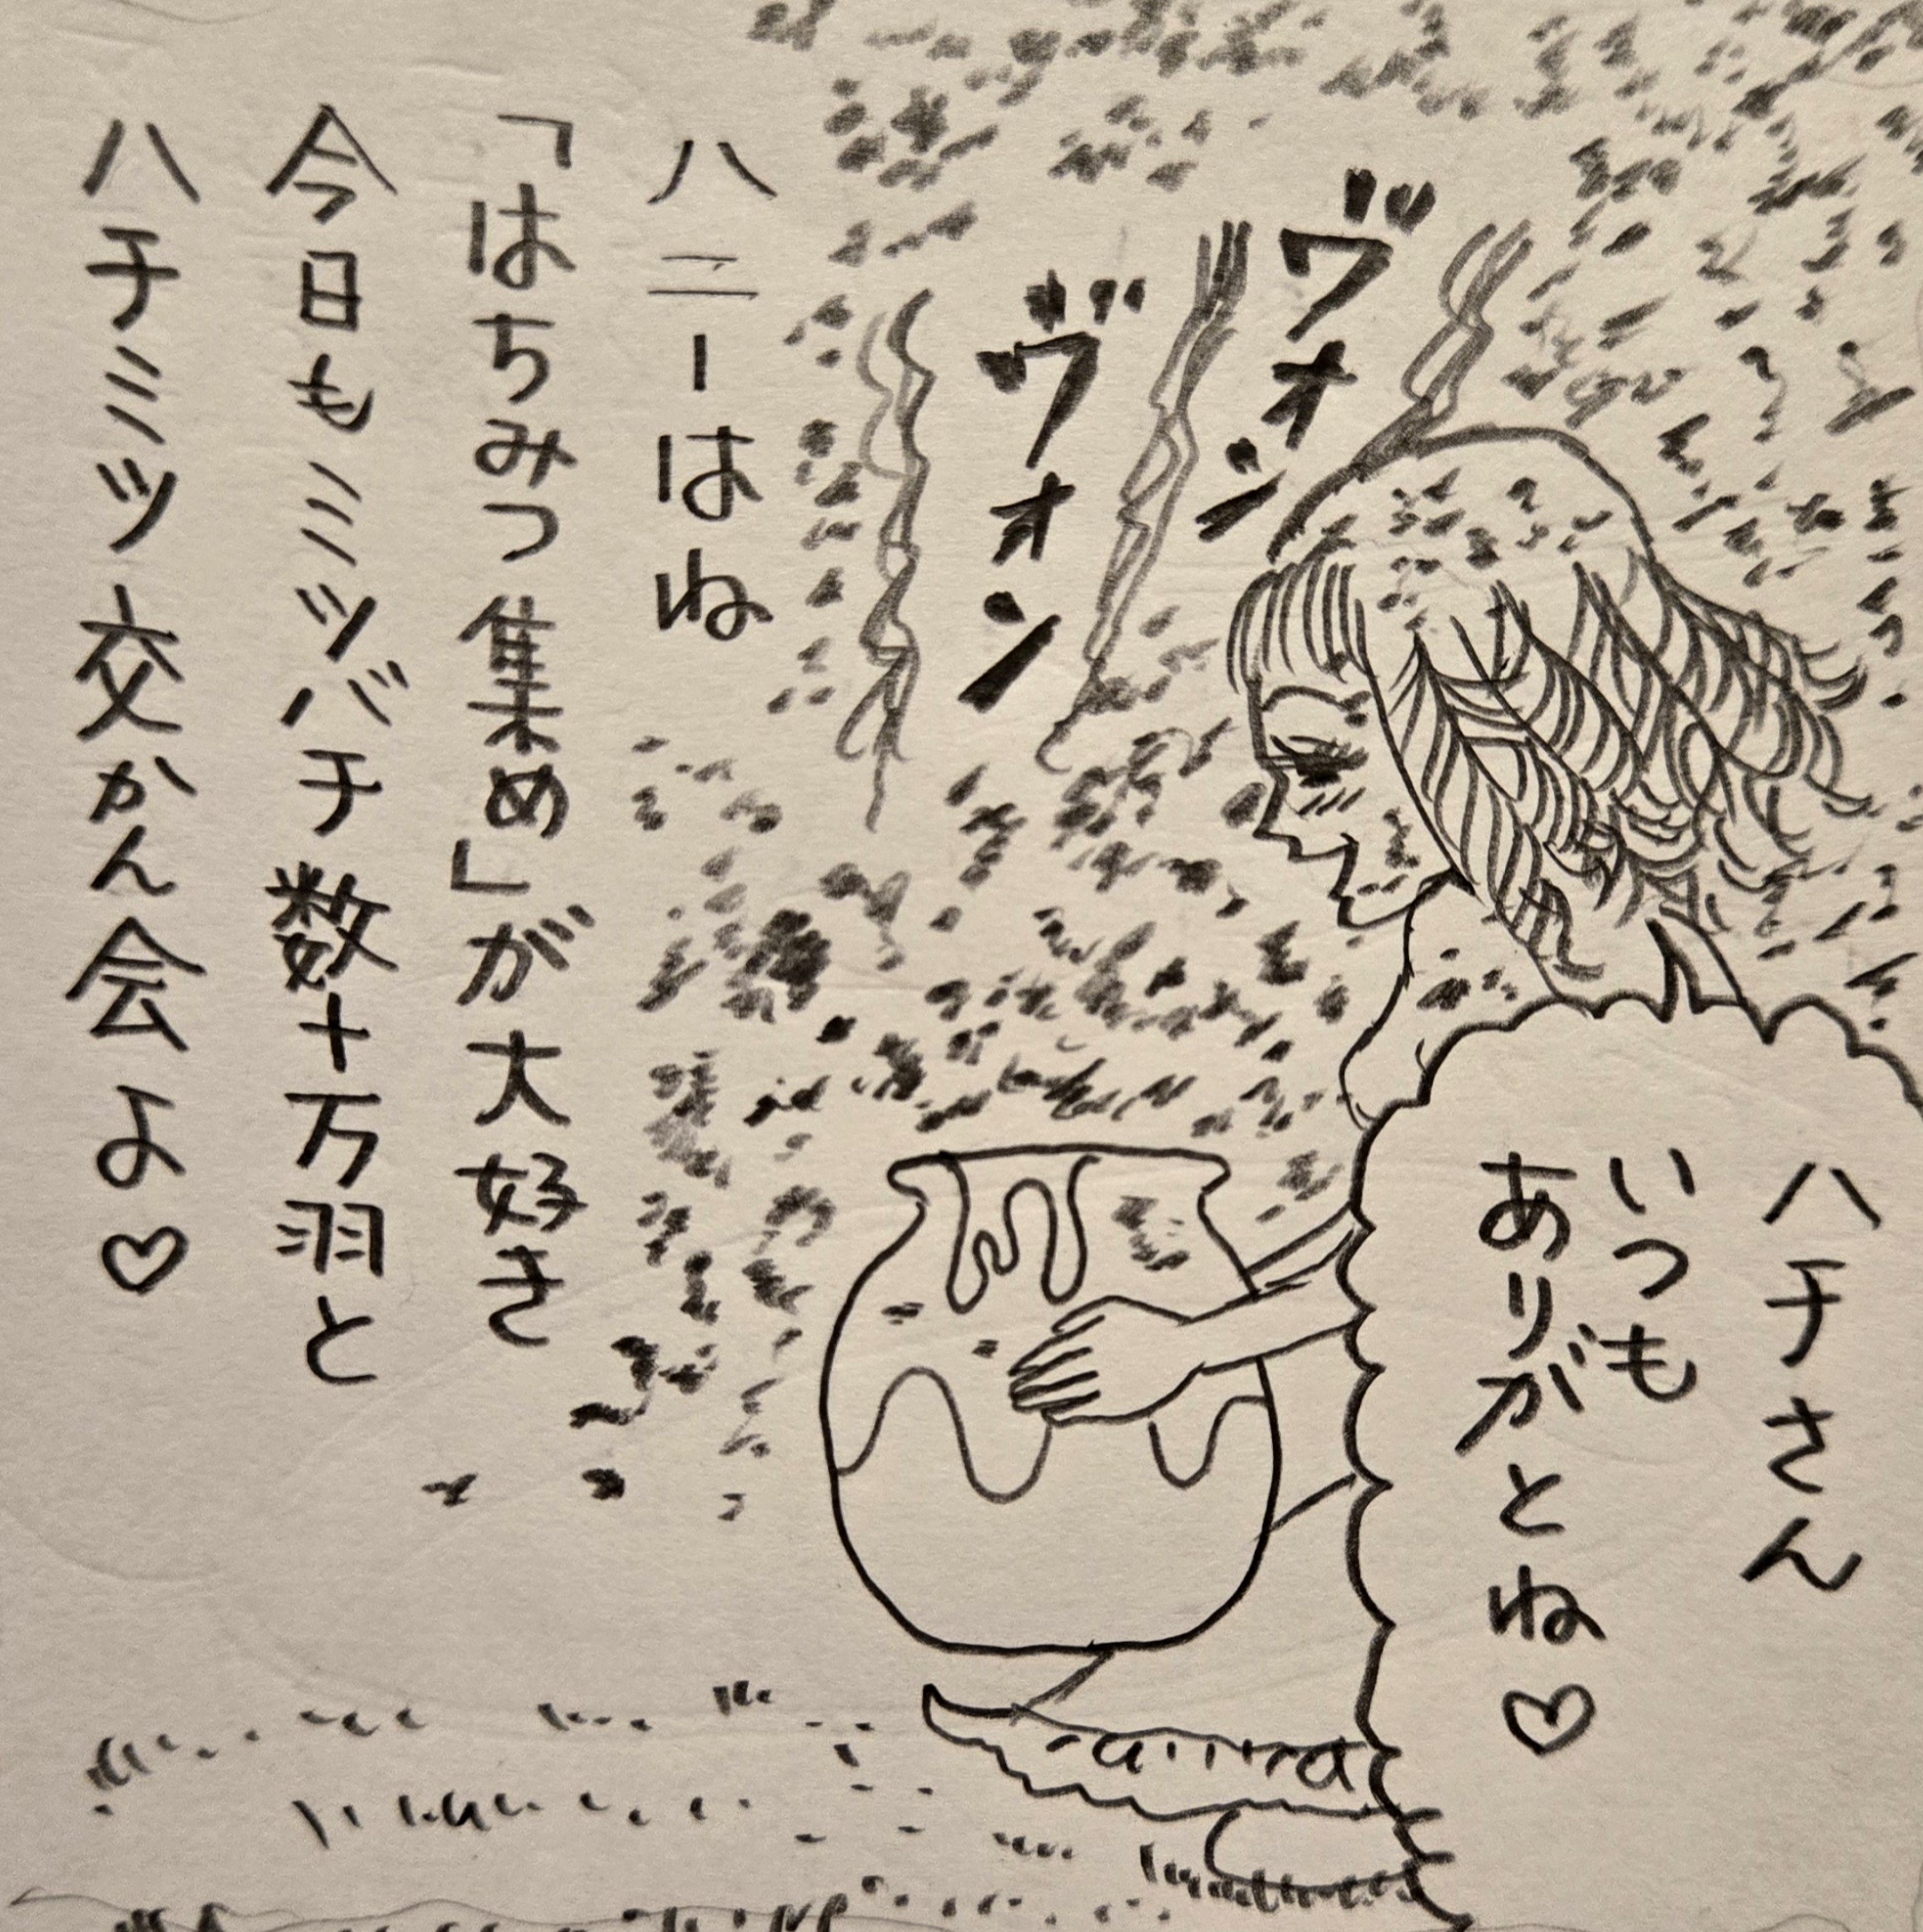 ハチさん
いつも
ありがとね♡
ヴォン
ヴォン
ハニーはね
「はちみつ集め」が大好き
今日もミツバチ数十万羽と
ハチミツ交かん会よ♡